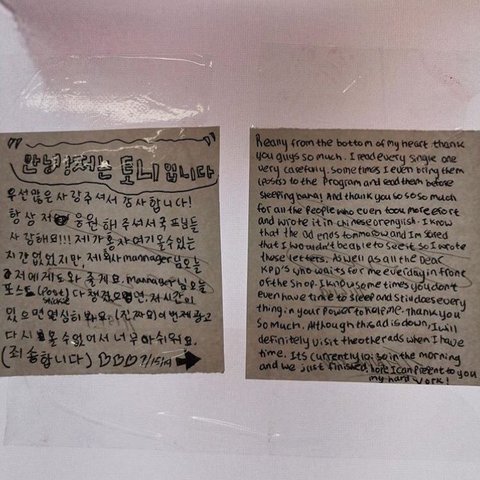 안녕 저는 토니 입니다
우선 많은 사랑 주셔서 감사합니다!
항상 저 응원해 주셔서 국프님들
사랑해요!!! 제가 혼자 여기 올 수 있는
시간 없었지만, 제 회사 manager 님 오늘
저에게 도와 줄게요. manager 님 오늘
포스트 (post) 다
있으면 열심히 봐요. (진짜요) 이번 제 광고
다시 볼 수 없어서 너무 아쉬워요.
(죄송합니다) 7/15/19
Really from the bottom of my heart thank
you guys so much. I read every single one
very carefully. Sometimes I even bring them
(posts) to the Program and read them before
sleeping haha! And thank you so so so much
for all the people who even took more effort
and wrote it in chinese or english. I know
that the ad ends tommorow and Im scared
that I wouldn't be able to see it so I wrote
these letters. As well as all the Dear
KPD's who waits for me everyday in front
of the shop. I know sometimes you don't
even have time to sleep and still does every
thing in your power to help me. Thank you
so much. Although this ad is down, I will
definitely visit the other ads when I have
time. Its currently in the morning
and we just finished, hope I can present to you
my hard work!